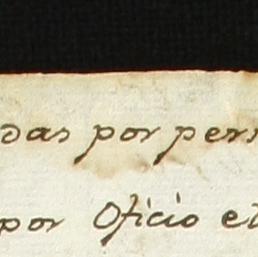 das por pers
por Oficio et